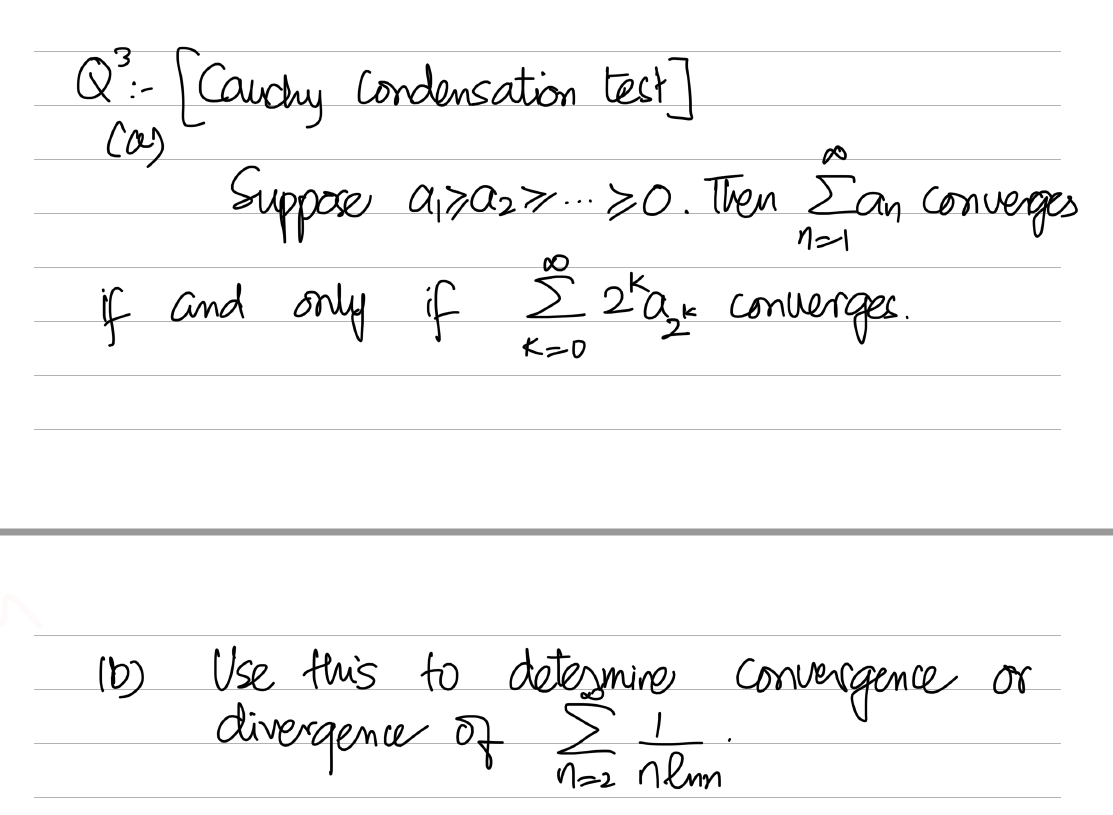 Q3:- [Cauchy Condensation test]
(a)
Suppose a₁≥a₂≥...≥0. Then ∑_{n=1}^{∞} aₙ converges
if and only if ∑_{k=0}^{∞} 2^k a_{2^k} converges.
(b) Use this to determine convergence or
divergence of ∑_{n=2}^{∞} 1/(n ln n).